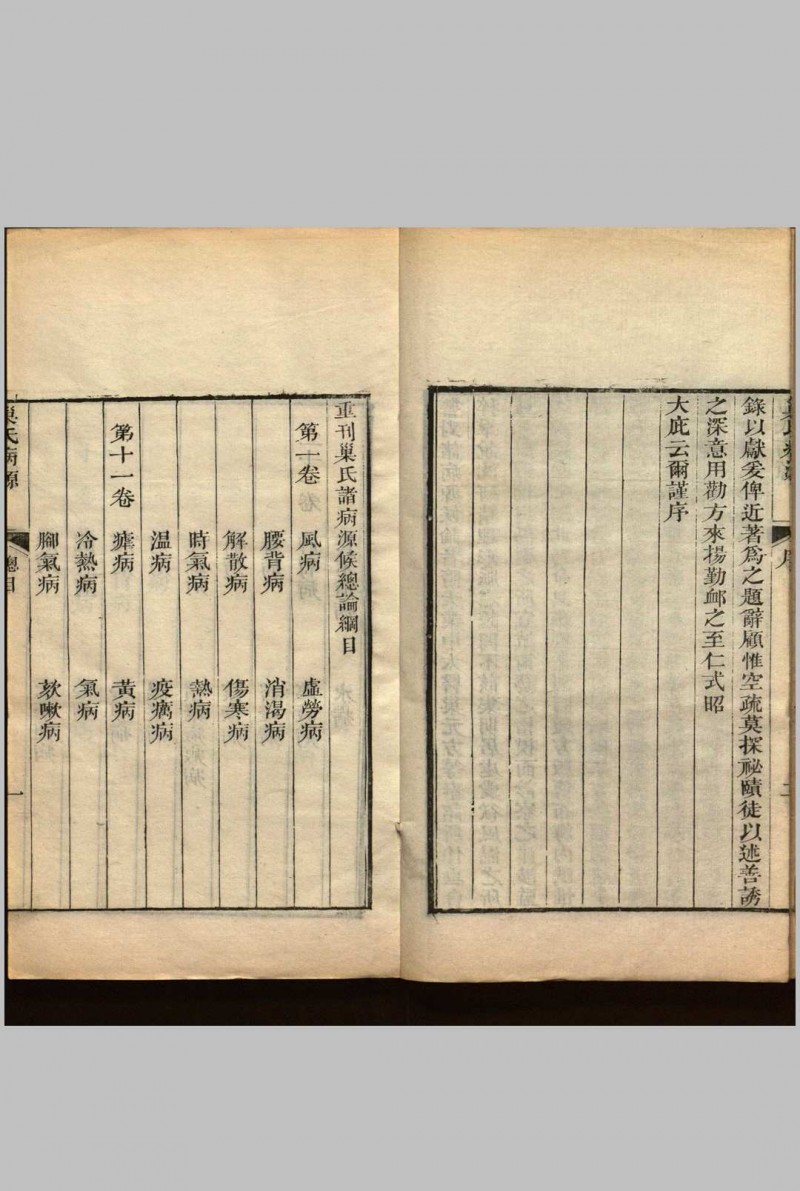 錄以獻爰俾近著為之題辭顧惟空疏莫探祕賾徒以述善誘
之深意用勸方來揚勤邺之至仁式昭
大庇云爾謹序
重刊巢氏諸病源候總論綱目
第一卷 風病 虛勞病
腰背病 消渴病
解散病 傷寒病
時氣病 熱病
温病 疫癘病
第十一卷 瘧病 黃病
冷熱病 氣病
腳氣病 欬嗽病
巢氏病源 總目 一